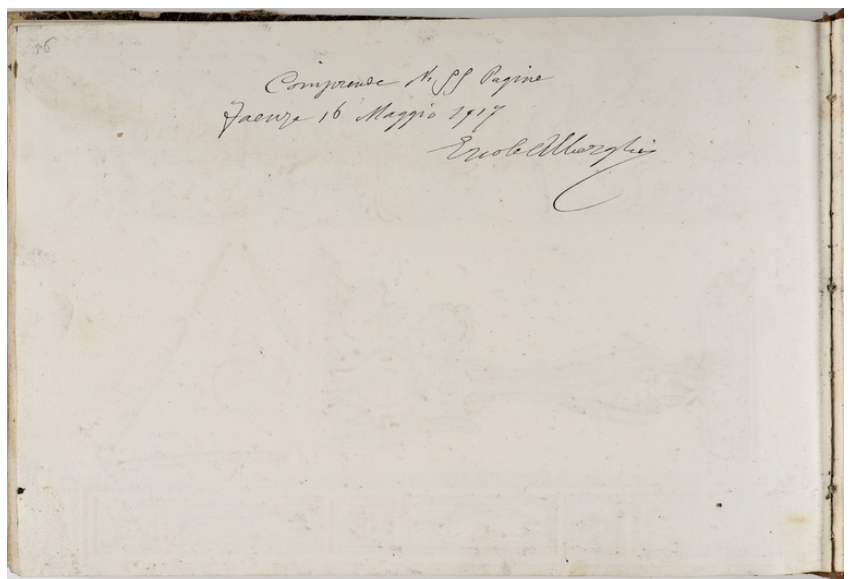 56
Comprende N. 55 Pagine
Faenza 16 Maggio 1917
Ercole Alberghi